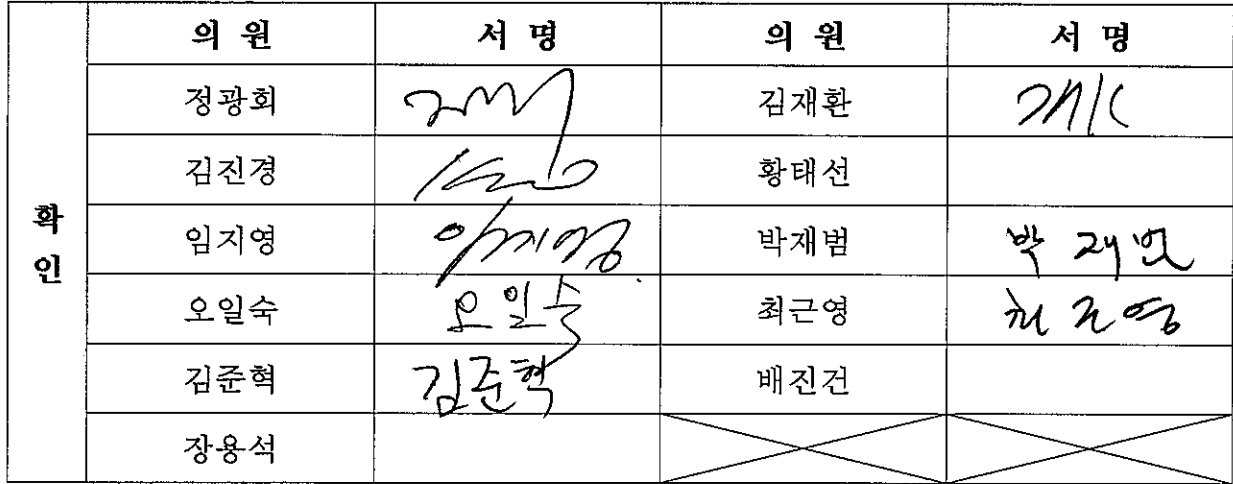 의 원 서 명 의 원 서 명
정광회 김재환
김진경 황태선
확 인
임지영 임지영 박재범 박재범
오일숙 오일숙 최근영 최근영
김준혁 김준혁 배진건
장용석